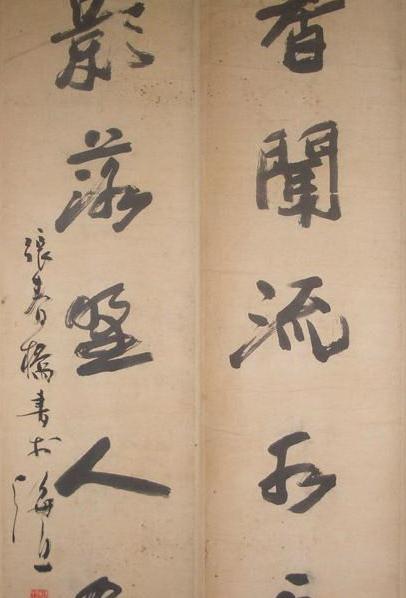 香聞流水
影落野人
張春橋書於海上